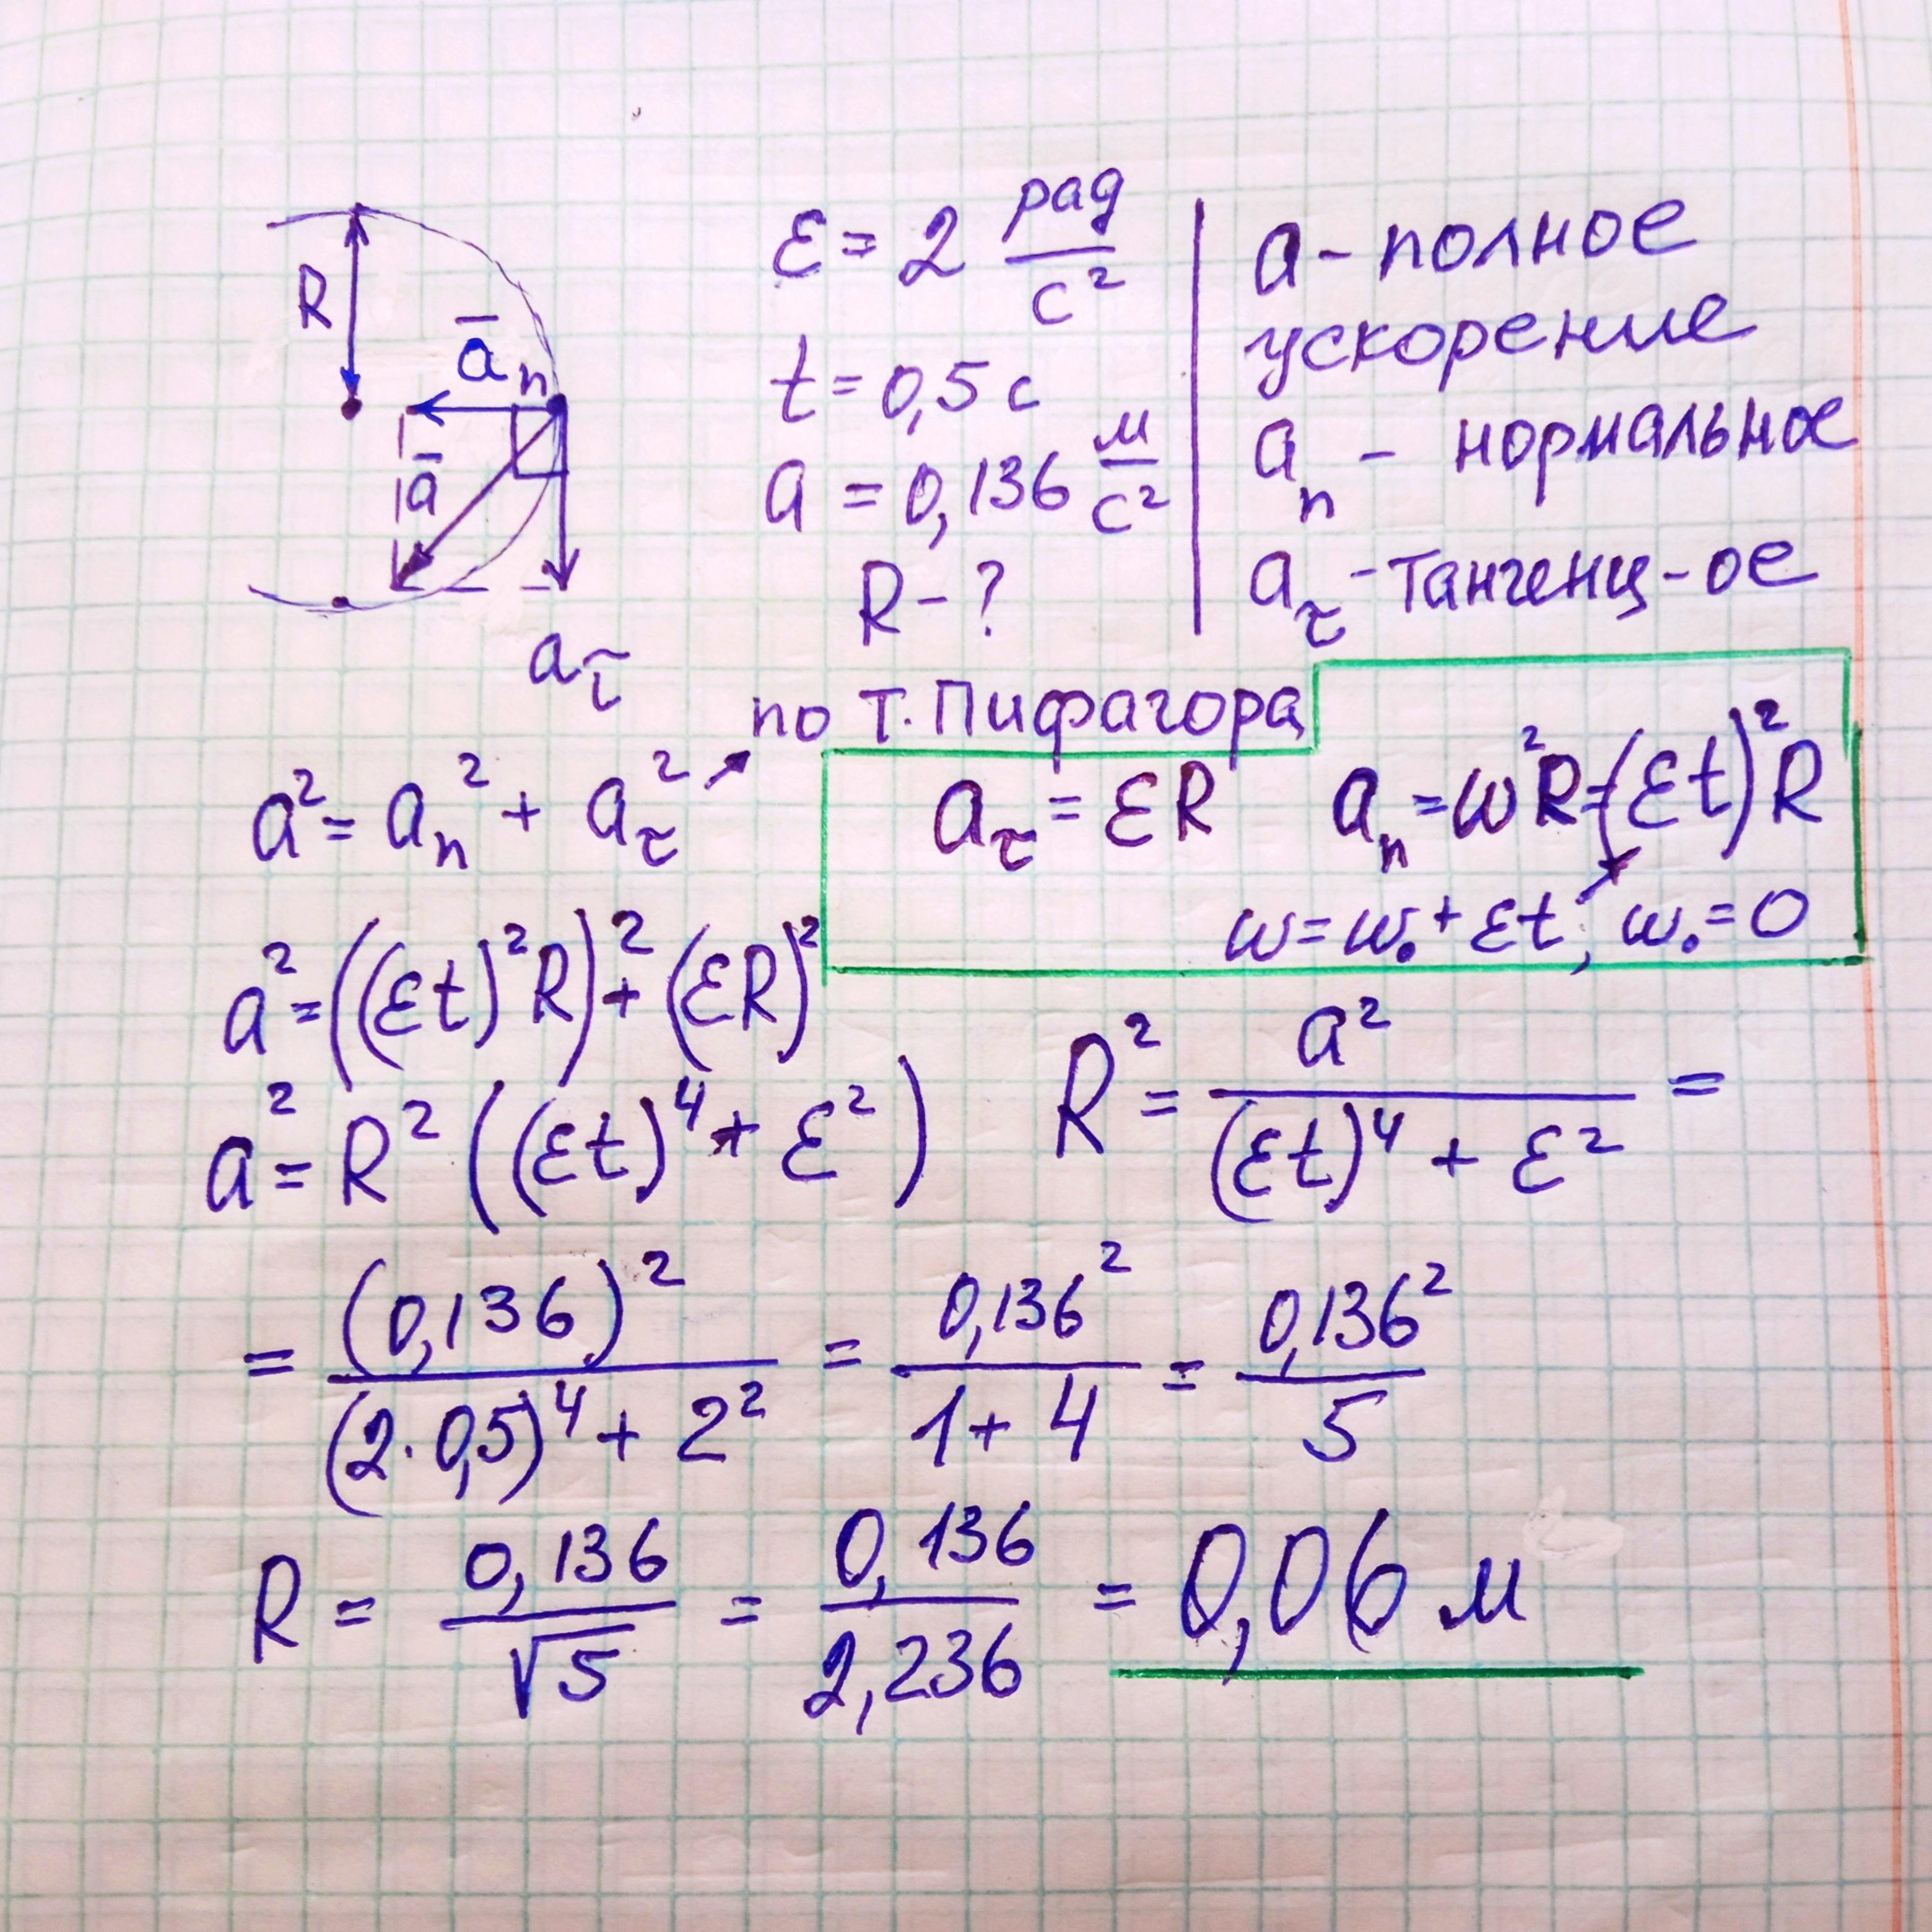 R
a̅ₙ
a̅
a_τ
ε = 2 рад/с²
t = 0,5 с
a = 0,136 м/с²
R - ?
a - полное
ускорение
aₙ - нормальное
a_τ - тангенц-ое
по т. Пифагора
a² = aₙ² + a_τ²
a_τ = εR aₙ = ω²R = (εt)²R
ω = ω₀ + εt; ω₀ = 0
a² = ((εt)²R)² + (εR)²
a² = R² ((εt)⁴ + ε²) R² = a²/((εt)⁴ + ε²) =
= (0,136)²/((2·0,5)⁴ + 2²) = 0,136²/(1 + 4) = 0,136²/5
R = 0,136/√5 = 0,136/2,236 = 0,06 м